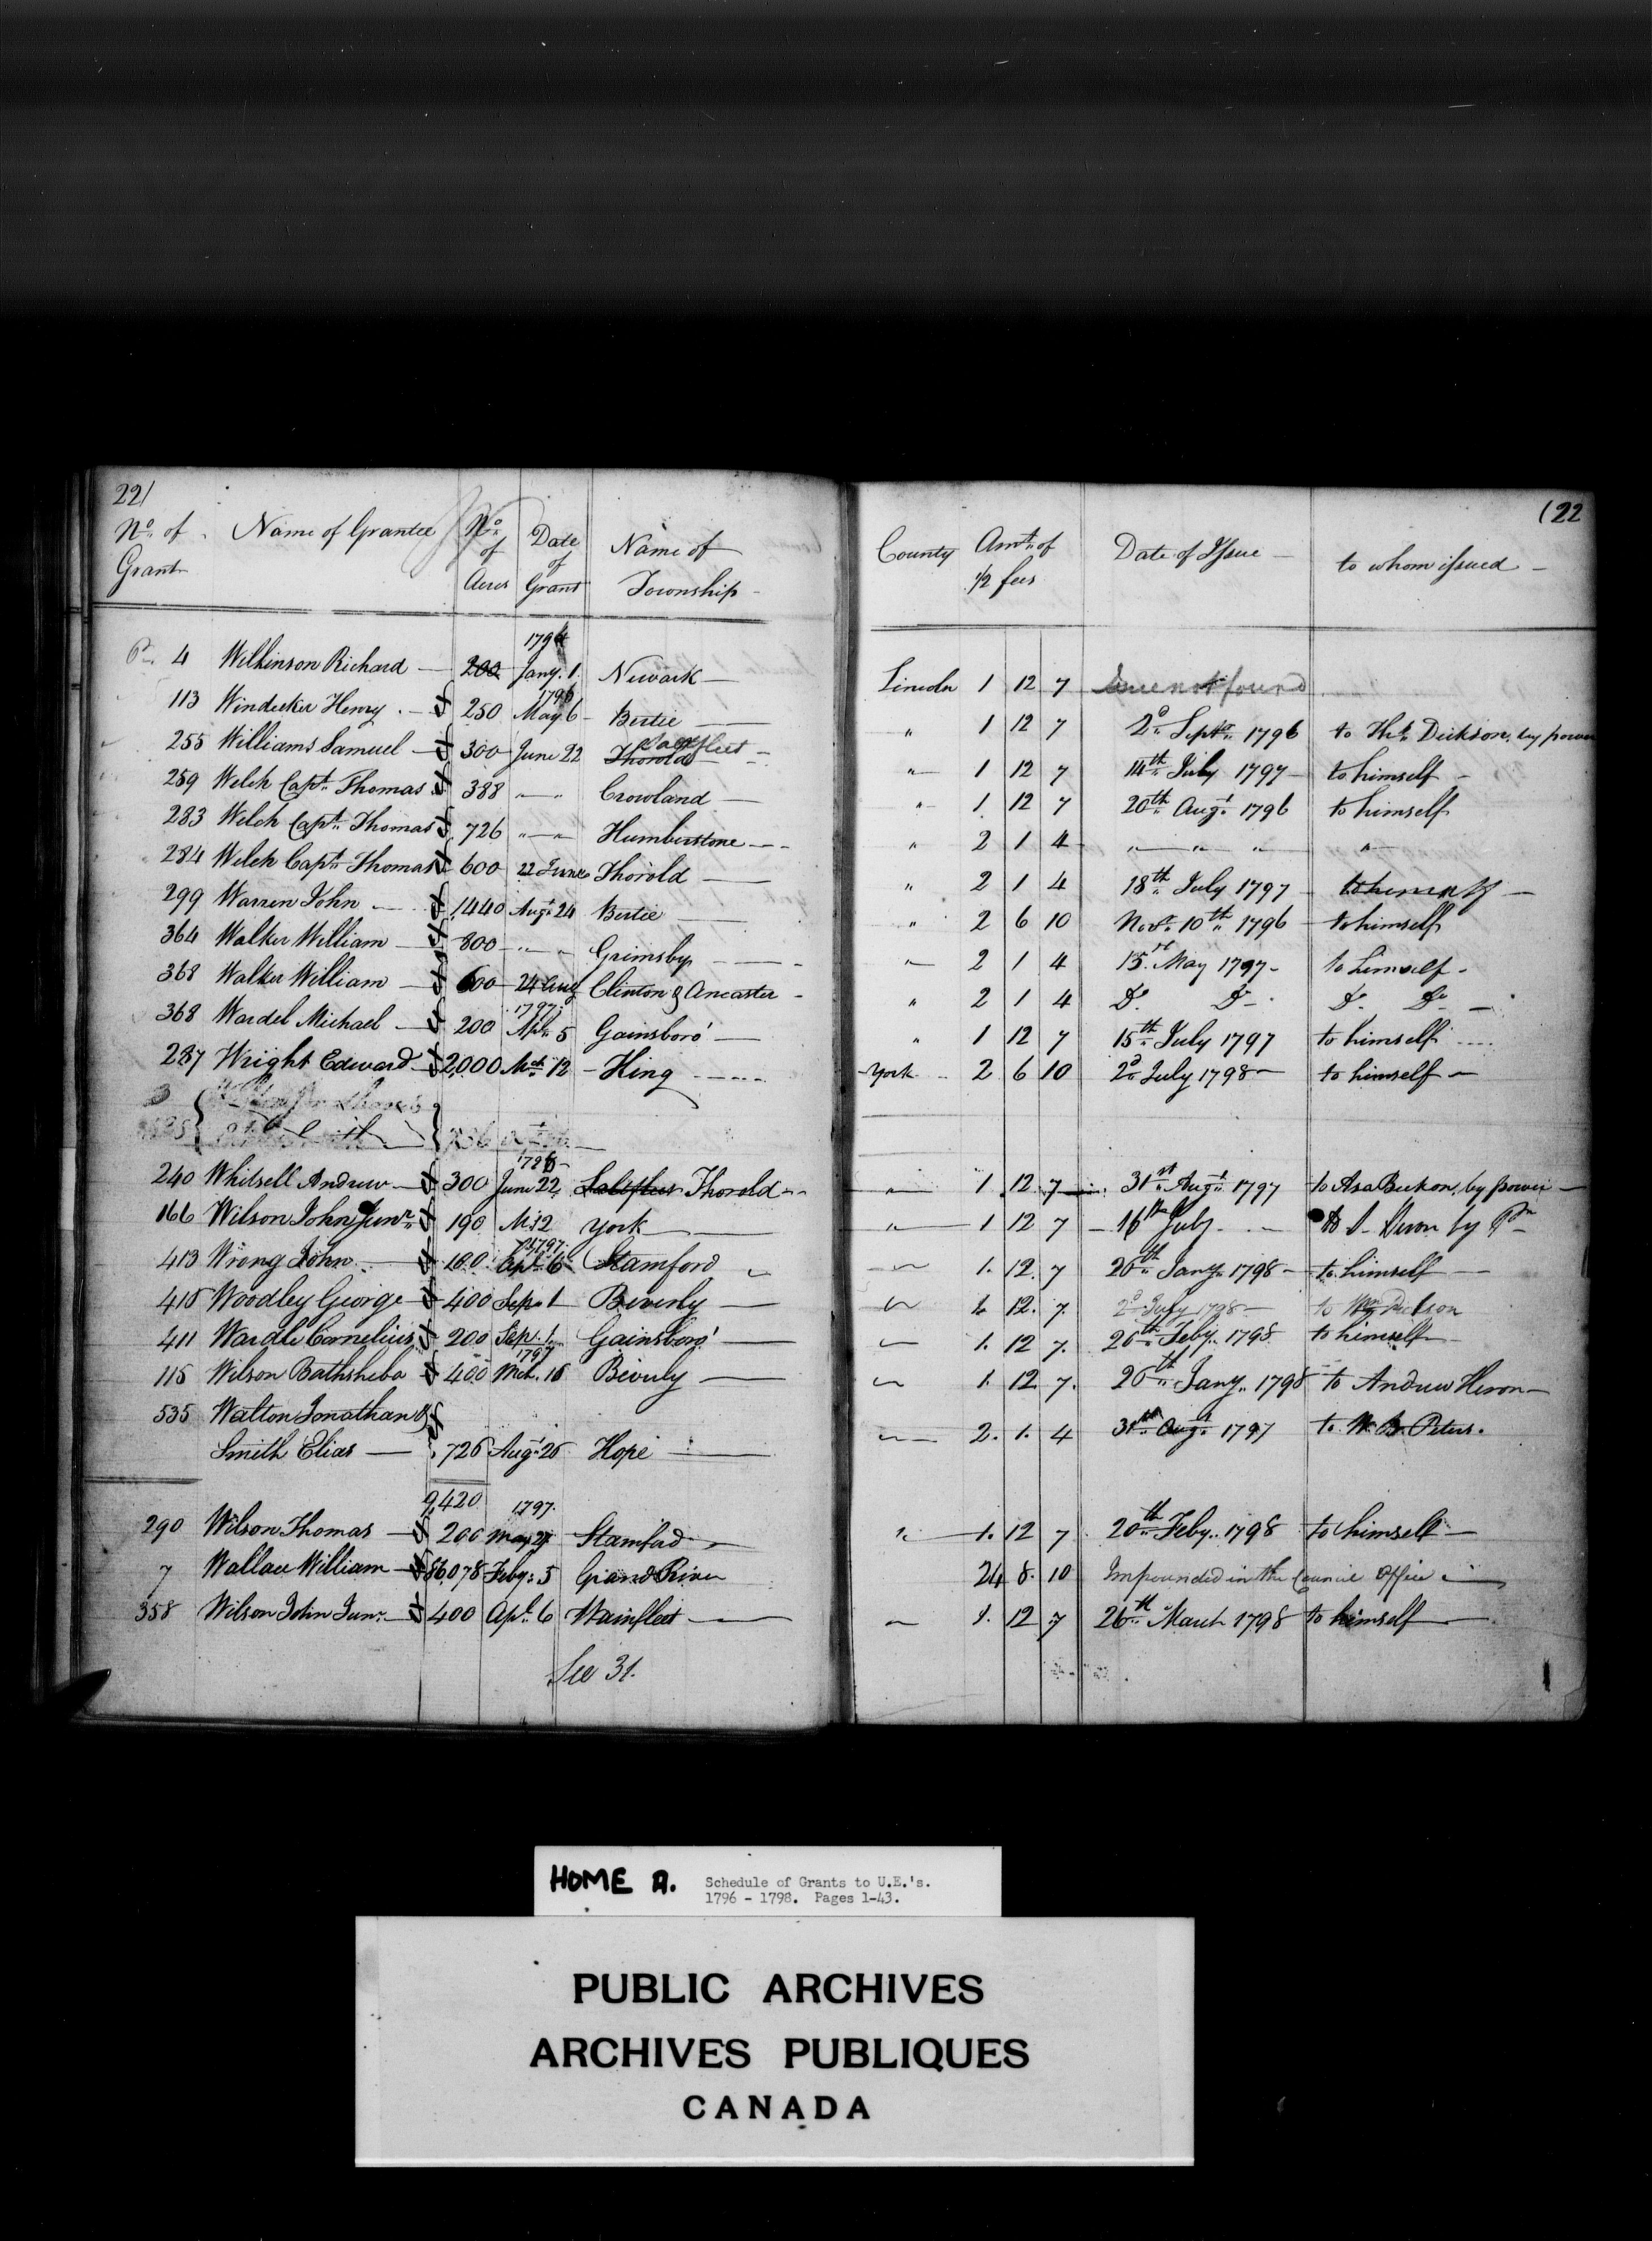 22/
No. of Grant Name of Grantee No. of Acres Date of Grant Name of Township
1796
4 Wilkinson Richard 200 Jany. 1. Newark
1796
113 Windecker Henry 250 May 6 Bertie
255 Williams Samuel 300 June 22 Thorold Saltfleet
259 Welch Capt. Thomas 388 " " Crowland
283 Welch Capt. Thomas 726 " " Humberstone
284 Welch Capt. Thomas 600 22 June Thorold
299 Warren John 1440 Augt. 24 Bertie
364 Walker William 800 " " Grimsby
368 Walker William 600 24 Aug Clinton & Ancaster
1797
368 Wardel Michael 200 Apl. 5 Gainsboro'
287 Wright Edward 2,000 Mch. 12 King
240 Whitsell Andrew 300 June 22, Saltfleet Thorold
166 Wilson John Junr. 190 York
1797
413 Wrong John 180 Apl. 6 Stamford
415 Woodley George 400 Sep. 1 Beverly
411 Wardle Cornelius 200 Sep. 1. Gainsboro'
1797
115 Wilson Bathsheba 400 Mch. 16 Beverly
535 Walton Jonathan &
Smith Elias 726 Augt. 26 Hope
9,420
1797.
290 Wilson Thomas 200 May 27 Stamford
7 Wallace William 86,078 Feby. 5 Grand River
358 Wilson John Junr. 400 Apl. 6 Wainfleet
See 31.
(22
County Amt. of 1/2 fees Date of Issue to whom issued
Lincoln 1 12 7 Issue not found
" 1 12 7 2d. Septr. 1796 to Dickson, by power
" 1 12 7 14th July 1797 to himself
" 1 12 7 20th Augt. 1796 to himself
" 2 1 4 " " " "
" 2 1 4 18th July 1797 to himself
" 2 6 10 Novr. 10th 1796 to himself
" 2 1 4 15 May 1797 to himself
" 2 1 4 Do. Do. Do. Do.
" 1 12 7 15th July 1797 to himself
York 2 6 10 2d July 1798 to himself
" 1 12 7 31st Augt. 1797 to Asa by power
" 1 12 7 16th July by
" 1. 12. 7 26th Jany. 1798 to himself
" 1. 12. 7. 2d July 1798 to Wm. Dickson
" 1. 12 7. 26th Feby. 1798 to himself
" 1. 12 7. 26th Jany. 1798 to Andrew Heron
" 2. 1. 4 31st Augt. 1797 to W. B. Peters.
" 1. 12 7 20th Feby. 1798 to himself
24 8. 10 Impounded in the Council Office
" 1. 12 7 26th March 1798 to himself
HOME A.
Schedule of Grants to U.E.'s.
1796 - 1798. Pages 1-43.
PUBLIC ARCHIVES
ARCHIVES PUBLIQUES
CANADA